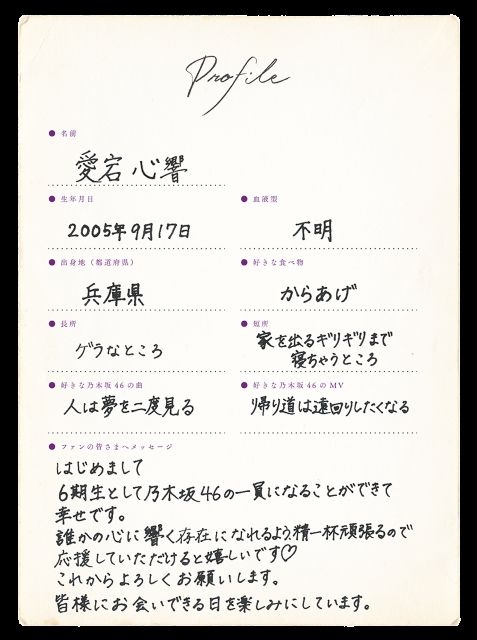 Profile
● 名前
愛宕 心響
● 生年月日
2005年9月17日
● 血液型
不明
● 出身地（都道府県）
兵庫県
● 好きな食べ物
からあげ
● 長所
ゲラなところ
● 短所
家を出るギリギリまで
寝ちゃうところ
● 好きな乃木坂46の曲
人は夢を二度見る
● 好きな乃木坂46のMV
帰り道は遠回りしたくなる
● ファンの皆さまへメッセージ
はじめまして
6期生として乃木坂46の一員になることができて
幸せです。
誰かの心に響く存在になれるよう、精一杯頑張るので
応援していただけると嬉しいです♡
これからよろしくお願いします。
皆様にお会いできる日を楽しみにしています。